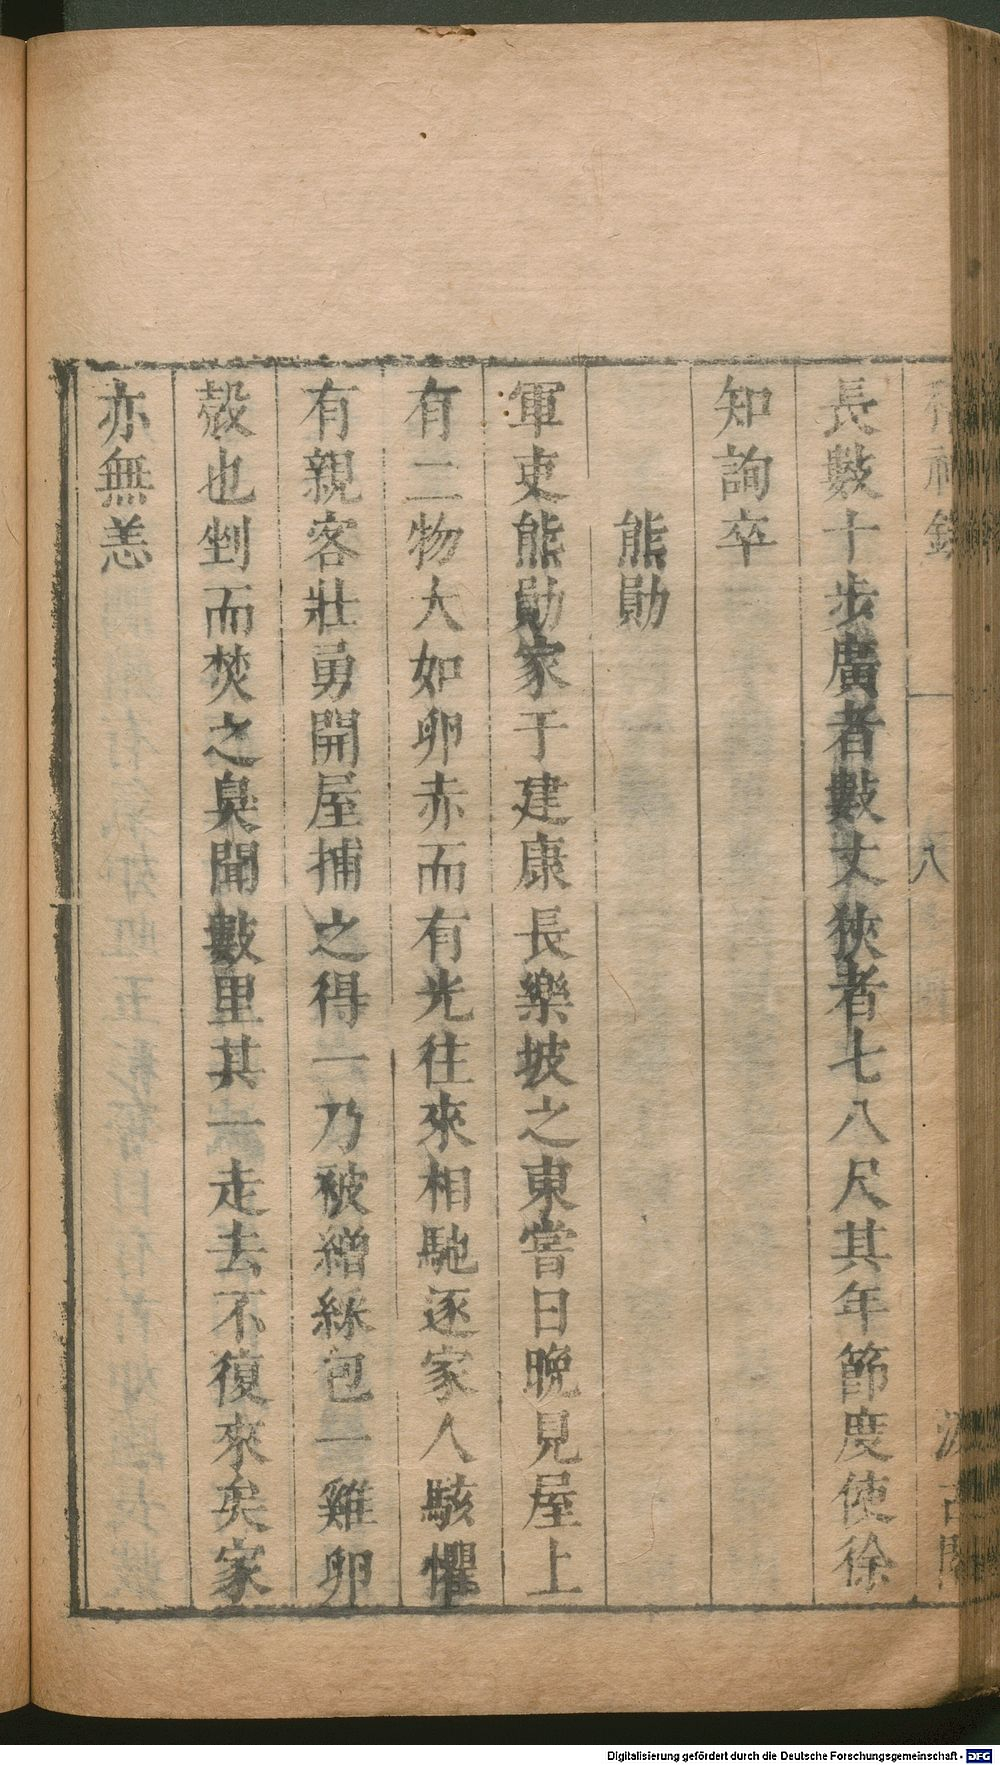 稽神錄
八
汲古閣
長數十步廣者數丈狹者七八尺其年節度使徐
知詢卒
熊勛
軍吏熊勛家于建康長樂坡之東嘗日晚見屋上
有二物大如卵赤而有光往來相馳逐家人駭懼
有親客壯勇開屋捕之得一乃被繒綵包一雞卵
殼也剉而焚之臭聞數里其一走去不復來矣家
亦無恙
Digitalisierung gefördert durch die Deutsche Forschungsgemeinschaft - DFG